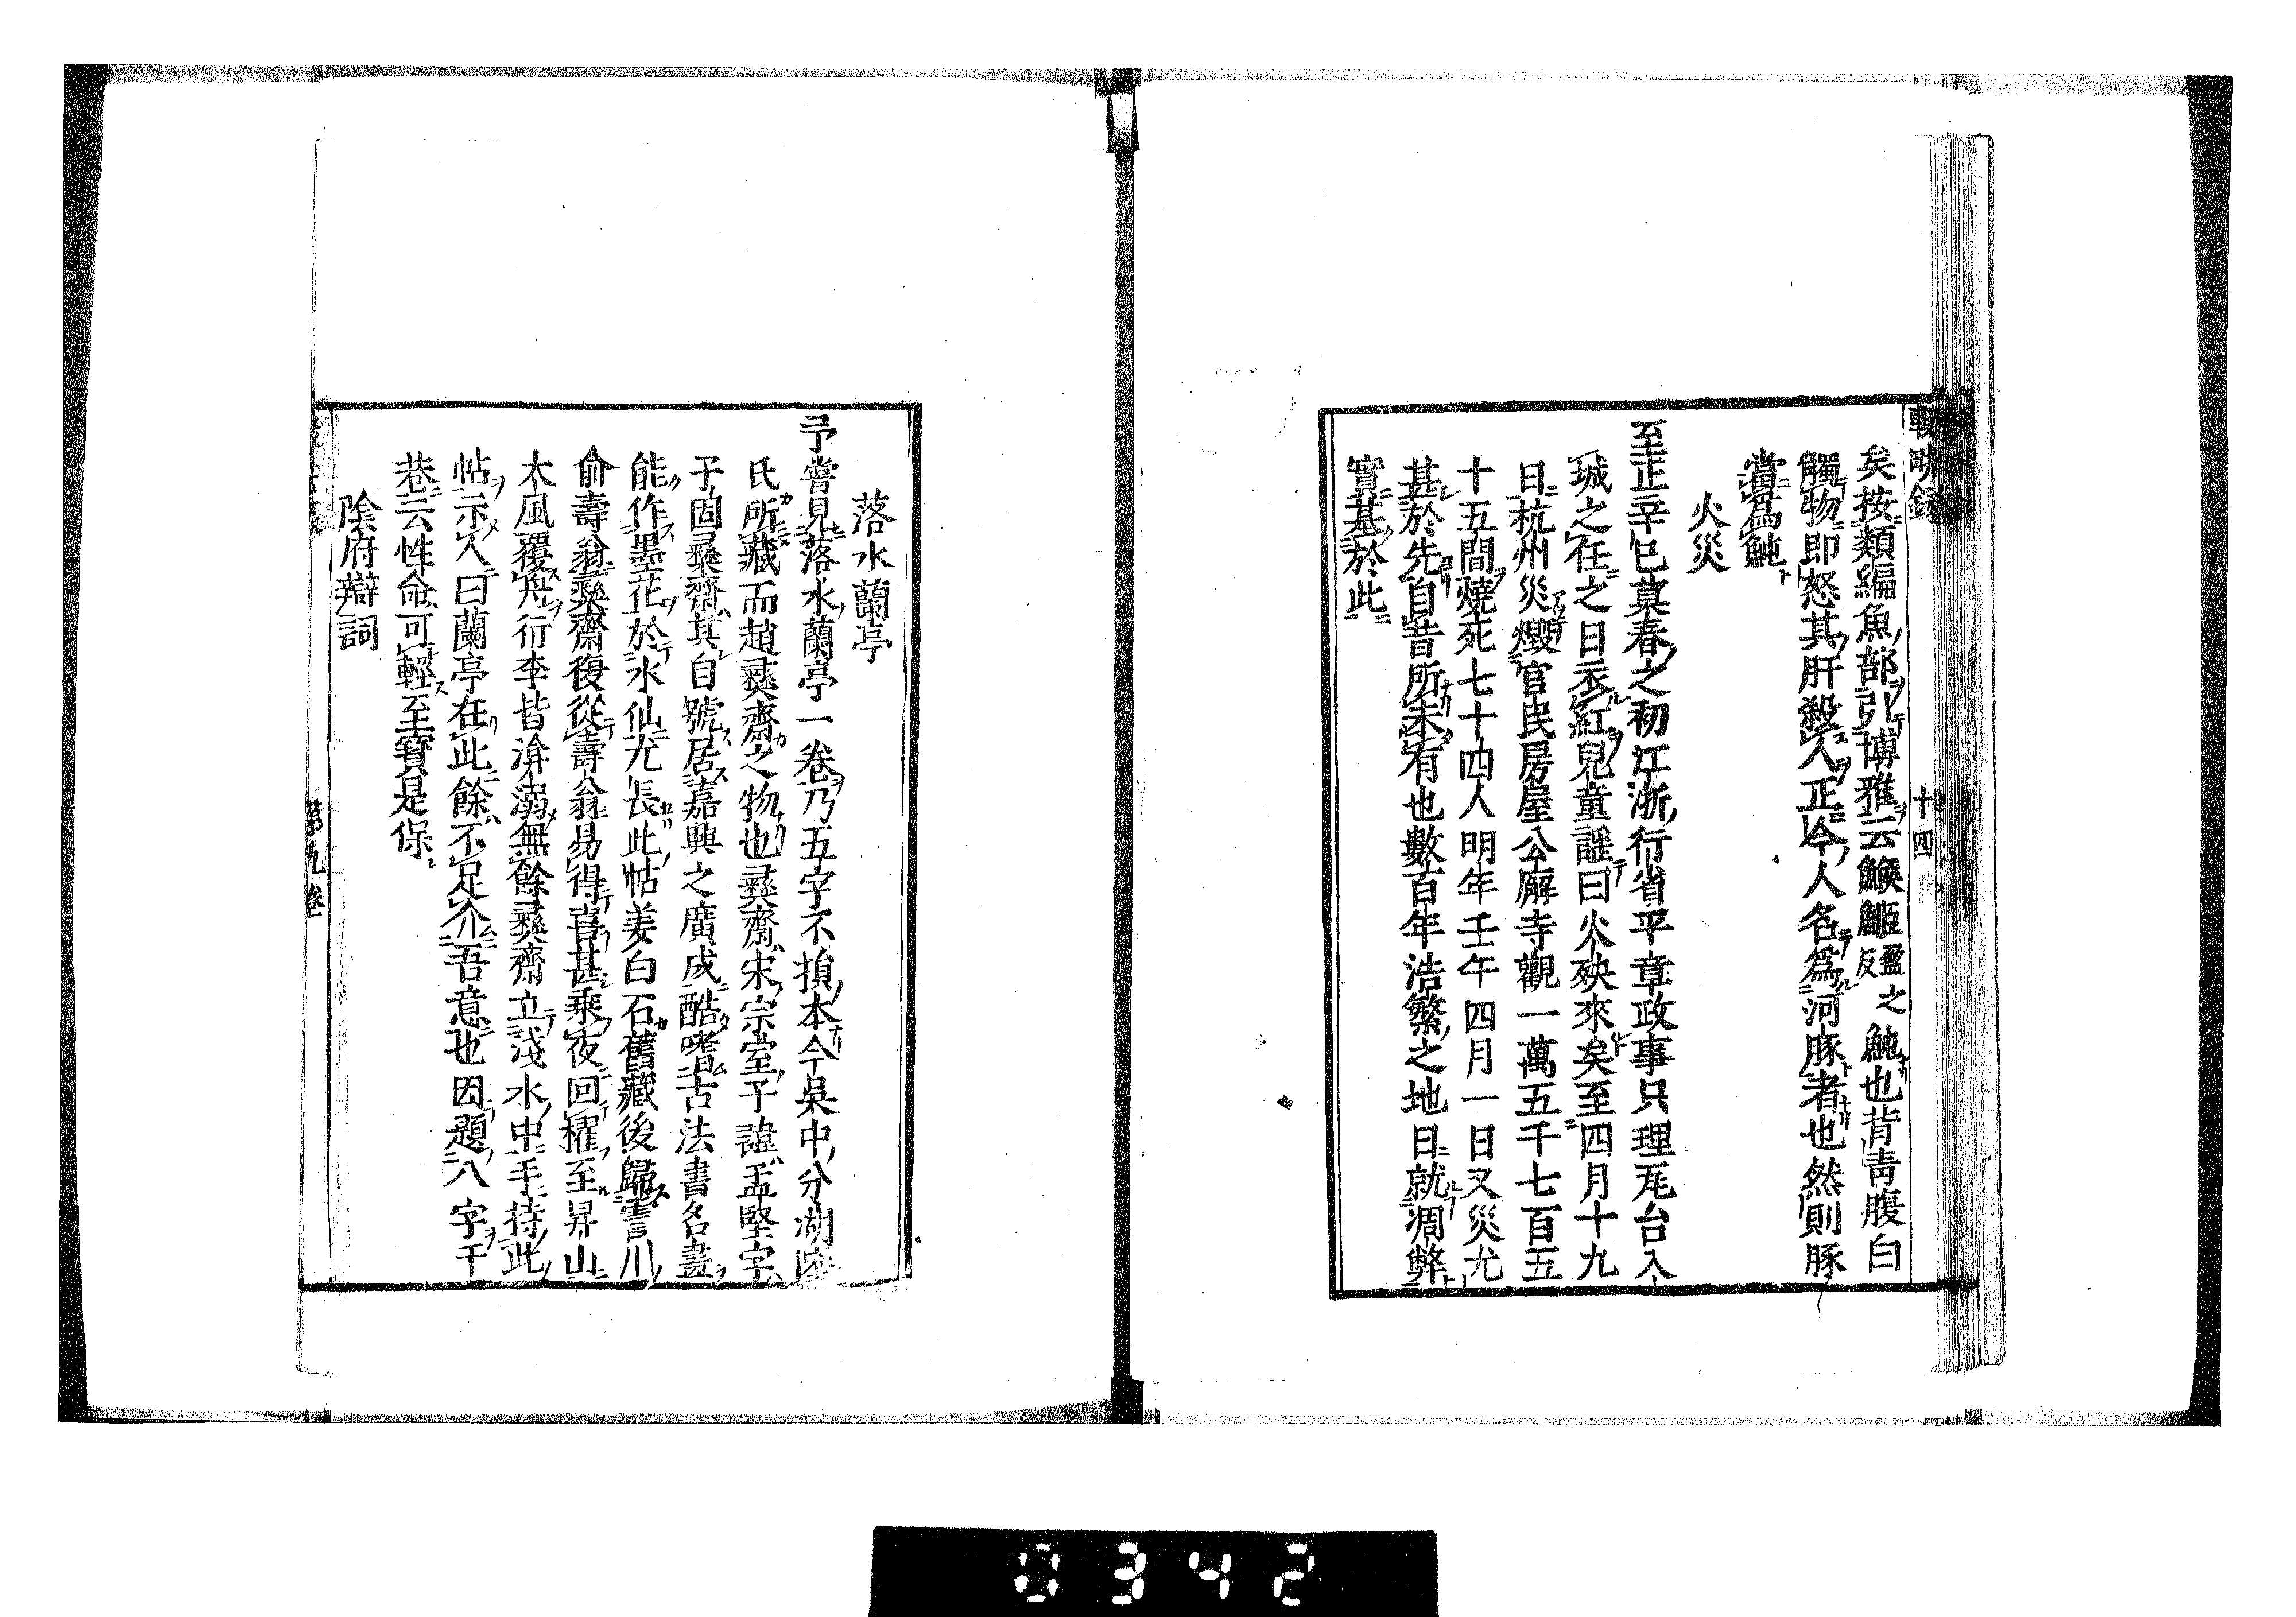 輟畊録
十四
矣按類編魚部引博雅云鯸䱌盈之反魨也背青腹白
觸物即怒其肝殺人正今人名為河豚者也然則豚
當為魨
火災
至正辛巳莫春之初江浙行省平章政事只理瓦台入
城之任之日衣紅兒童謡曰火殃來矣至四月十九
日杭州災燬官民房屋公廨寺觀一萬五千七百五
十五間燒死七十四人明年壬午四月一日又災尤
甚於先自昔所未有也數百年浩繁之地日就凋弊
實基於此
落水蘭亭
予嘗見落水蘭亭一卷乃五字不損本今吳中分湖
氏所藏而趙彞齋之物也彞齋宋宗室子諱孟堅字
子固彞齋其自號居嘉興之廣成酷嗜古法書名畫
能作墨花於水仙尤長此帖姜白石舊藏後歸霅川
俞壽翁彞齋復從壽翁易得喜甚乗夜回櫂至昇山
大風覆舟行李皆渰溺無餘彞齋立淺水中手持此
帖示人曰蘭亭在此餘不足介吾意也因題八字于
巻云性命可輕至寳是保
陰府辯詞
第九巻
0342